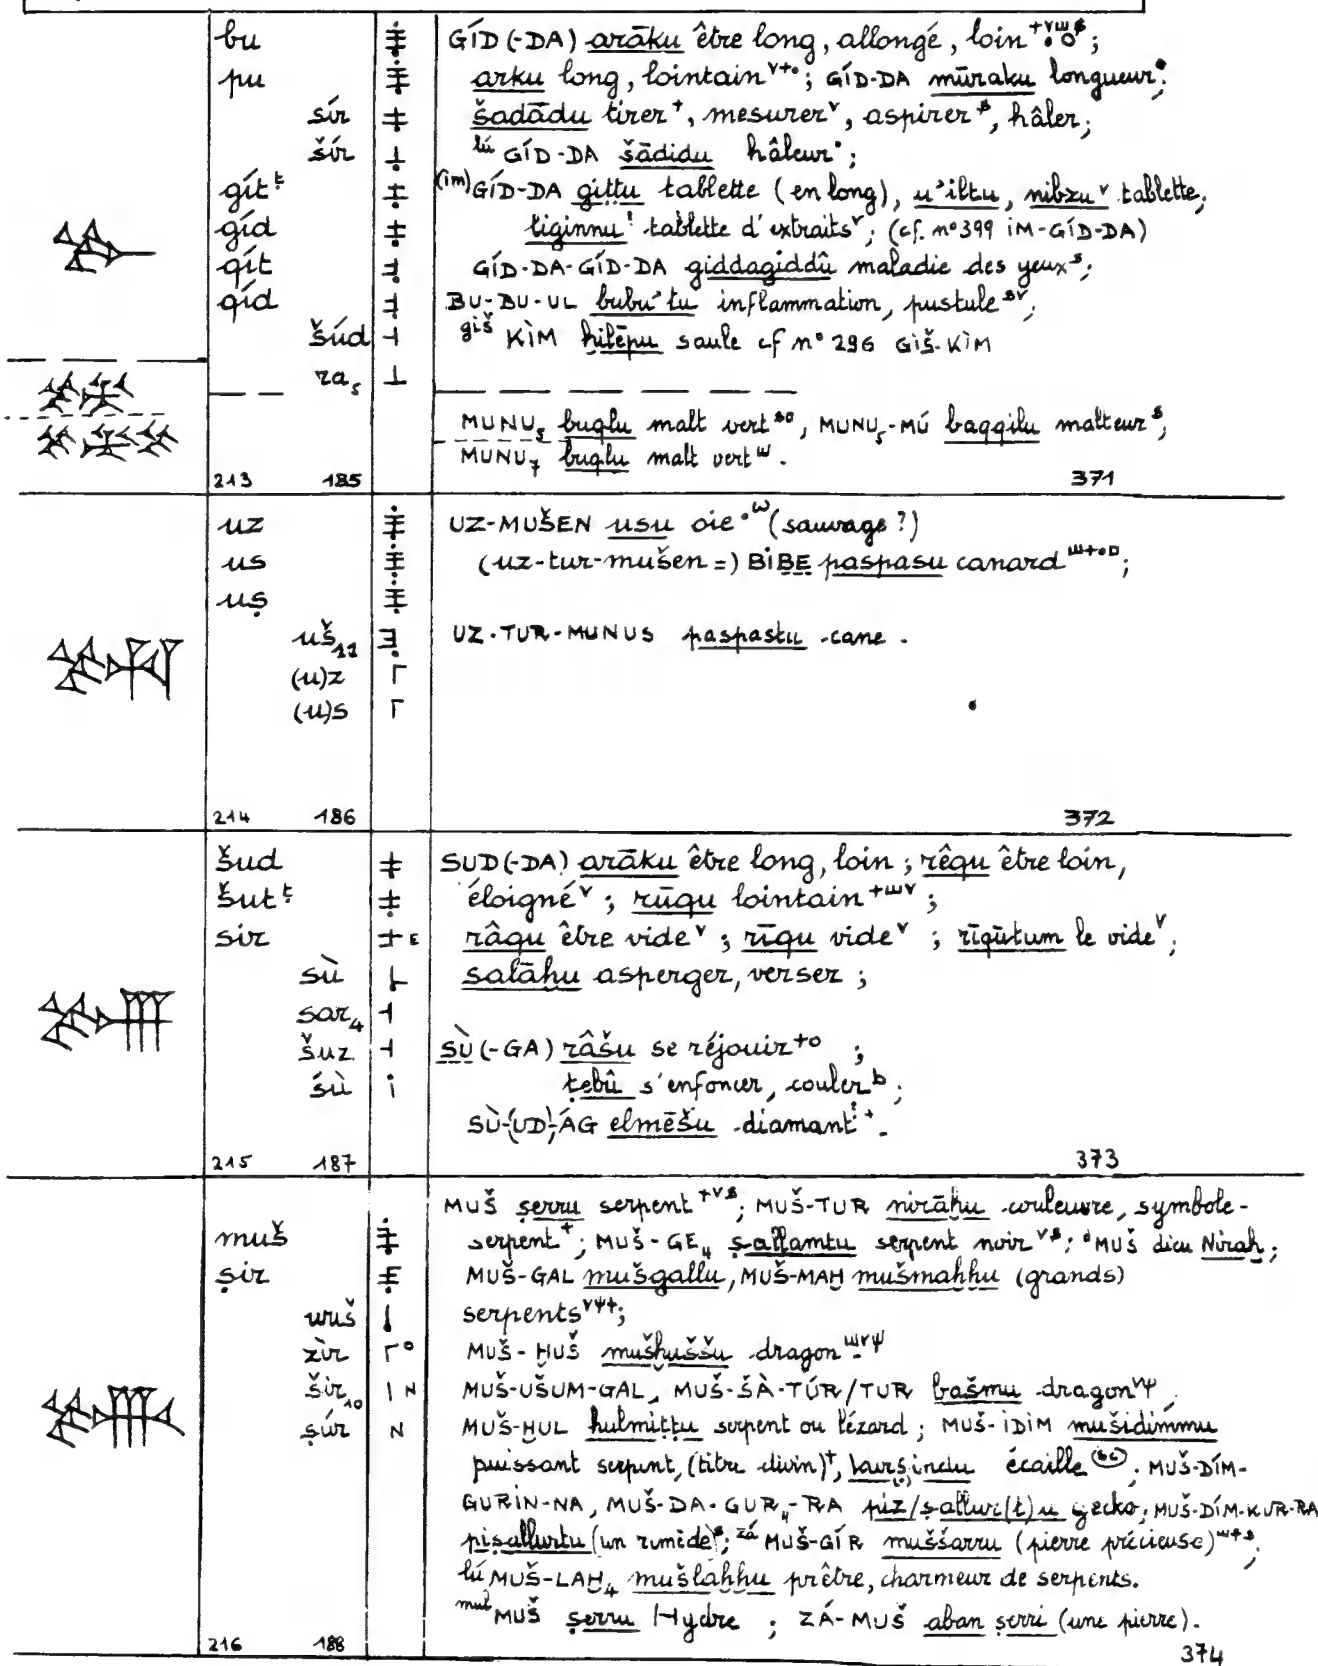 bu GÍD (-DA) arāku être long, allongé, loin ;
pu arku long, lointain ; GÍD-DA mūraku longueur ;
sír šadādu tirer +, mesurer v, aspirer, hâler ;
šír lú GÍD-DA šādidu hâleur ;
gít ṭ (im)GÍD-DA giṭṭu tablette (en long), u'iltu, nibzu v tablette,
gíd liginnu ! tablette d'extraits v ; (cf. n° 399 IM-GÍD-DA)
qít GÍD-DA-GÍD-DA giddagiddû maladie des yeux s ;
qíd BU-BU-UL bubu'tu inflammation, pustule sv ;
šúd giš KÌM ḫilēpu saule cf n° 296 GIŠ-KÌM
ra₅
MUNU₅ buqlu malt vert, MUNU₅-MÚ baqqilu malteur s,
MUNU₇ buqlu malt vert w.
213 185 371
uz UZ-MUŠEN usu oie (sauvage ?)
us (uz-tur-mušen =) BIBE paspasu canard ;
uṣ
uš₁₂ UZ-TUR-MUNUS paspastu cane.
(u)z
(u)s
214 186 372
šud SUD(-DA) arāku être long, loin ; rêqu être loin,
šut ṭ éloigné v ; rūqu lointain +wv ;
sir E râqu être vide v ; rīqu vide v ; rīqūtum le vide v,
sù salāḫu asperger, verser ;
sar₄
šuz SÙ(-GA) râšu se réjouir +o ;
śù ṭebû s'enfoncer, couler b ;
SÙ-(UD)-ÁG elmēšu diamant ? +.
215 187 373
MUŠ ṣerru serpent +vs ; MUŠ-TUR nirāḫu couleuvre, symbole-
muš serpent + ; MUŠ-GE₄ ṣallamtu serpent noir vs ; d MUŠ dieu Niraḫ ;
ṣir MUŠ-GAL mušgallu, MUŠ-MAḪ mušmaḫḫu (grands)
wuš serpents ;
zìr o MUŠ-ḪUŠ mušḫuššu dragon
šir₁₀ N MUŠ-UŠUM-GAL, MUŠ-ŠÀ-TÙR/TUR bašmu dragon,
ṣúr N MUŠ-ḪUL ḫulmiṭṭu serpent ou lézard ; MUŠ-IDIM mušidimmu
puissant serpent, (titre divin) +, écaille ; MUŠ-DÍM-
GURIN-NA, MUŠ-DA-GUR₄-RA piz/ṣallur(t)u gecko ; MUŠ-DÍM-KUR-RA
piṣallurtu (un remède) s ; zá MUŠ-GÍR muššarru (pierre précieuse) ;
lú MUŠ-LAḪ₄ mušlaḫḫu prêtre, charmeur de serpents.
mul MUŠ ṣerru Hydre ; ZÁ-MUŠ aban ṣerri (une pierre).
216 188 374